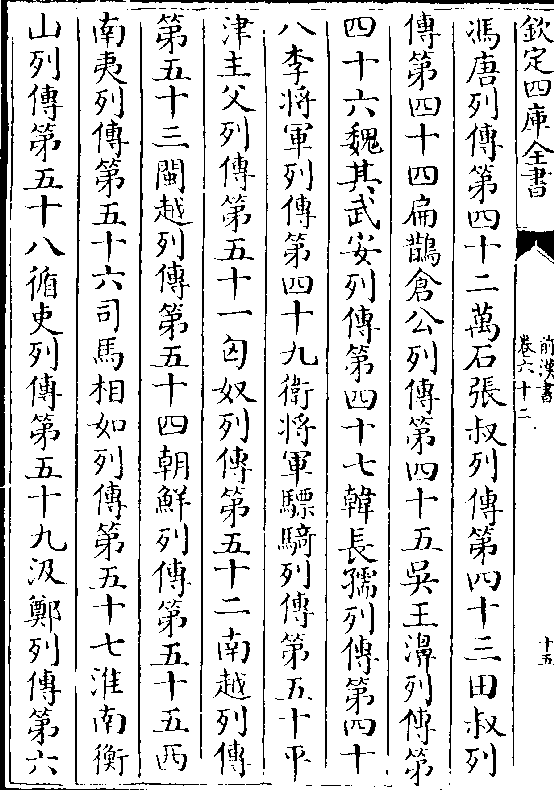 欽定四庫全書
前漢書
卷六十二
十五
馮唐列傳第四十二萬石張叔列傳第四十三田叔列
傳第四十四扁鵲倉公列傳第四十五吳王濞列傳第
四十六魏其武安列傳第四十七韓長孺列傳第四十
八李將軍列傳第四十九衛將軍驃騎列傳第五十平
津主父列傳第五十一匈奴列傳第五十二南越列傳
第五十三閩越列傳第五十四朝鮮列傳第五十五西
南夷列傳第五十六司馬相如列傳第五十七淮南衡
山列傳第五十八循吏列傳第五十九汲鄭列傳第六